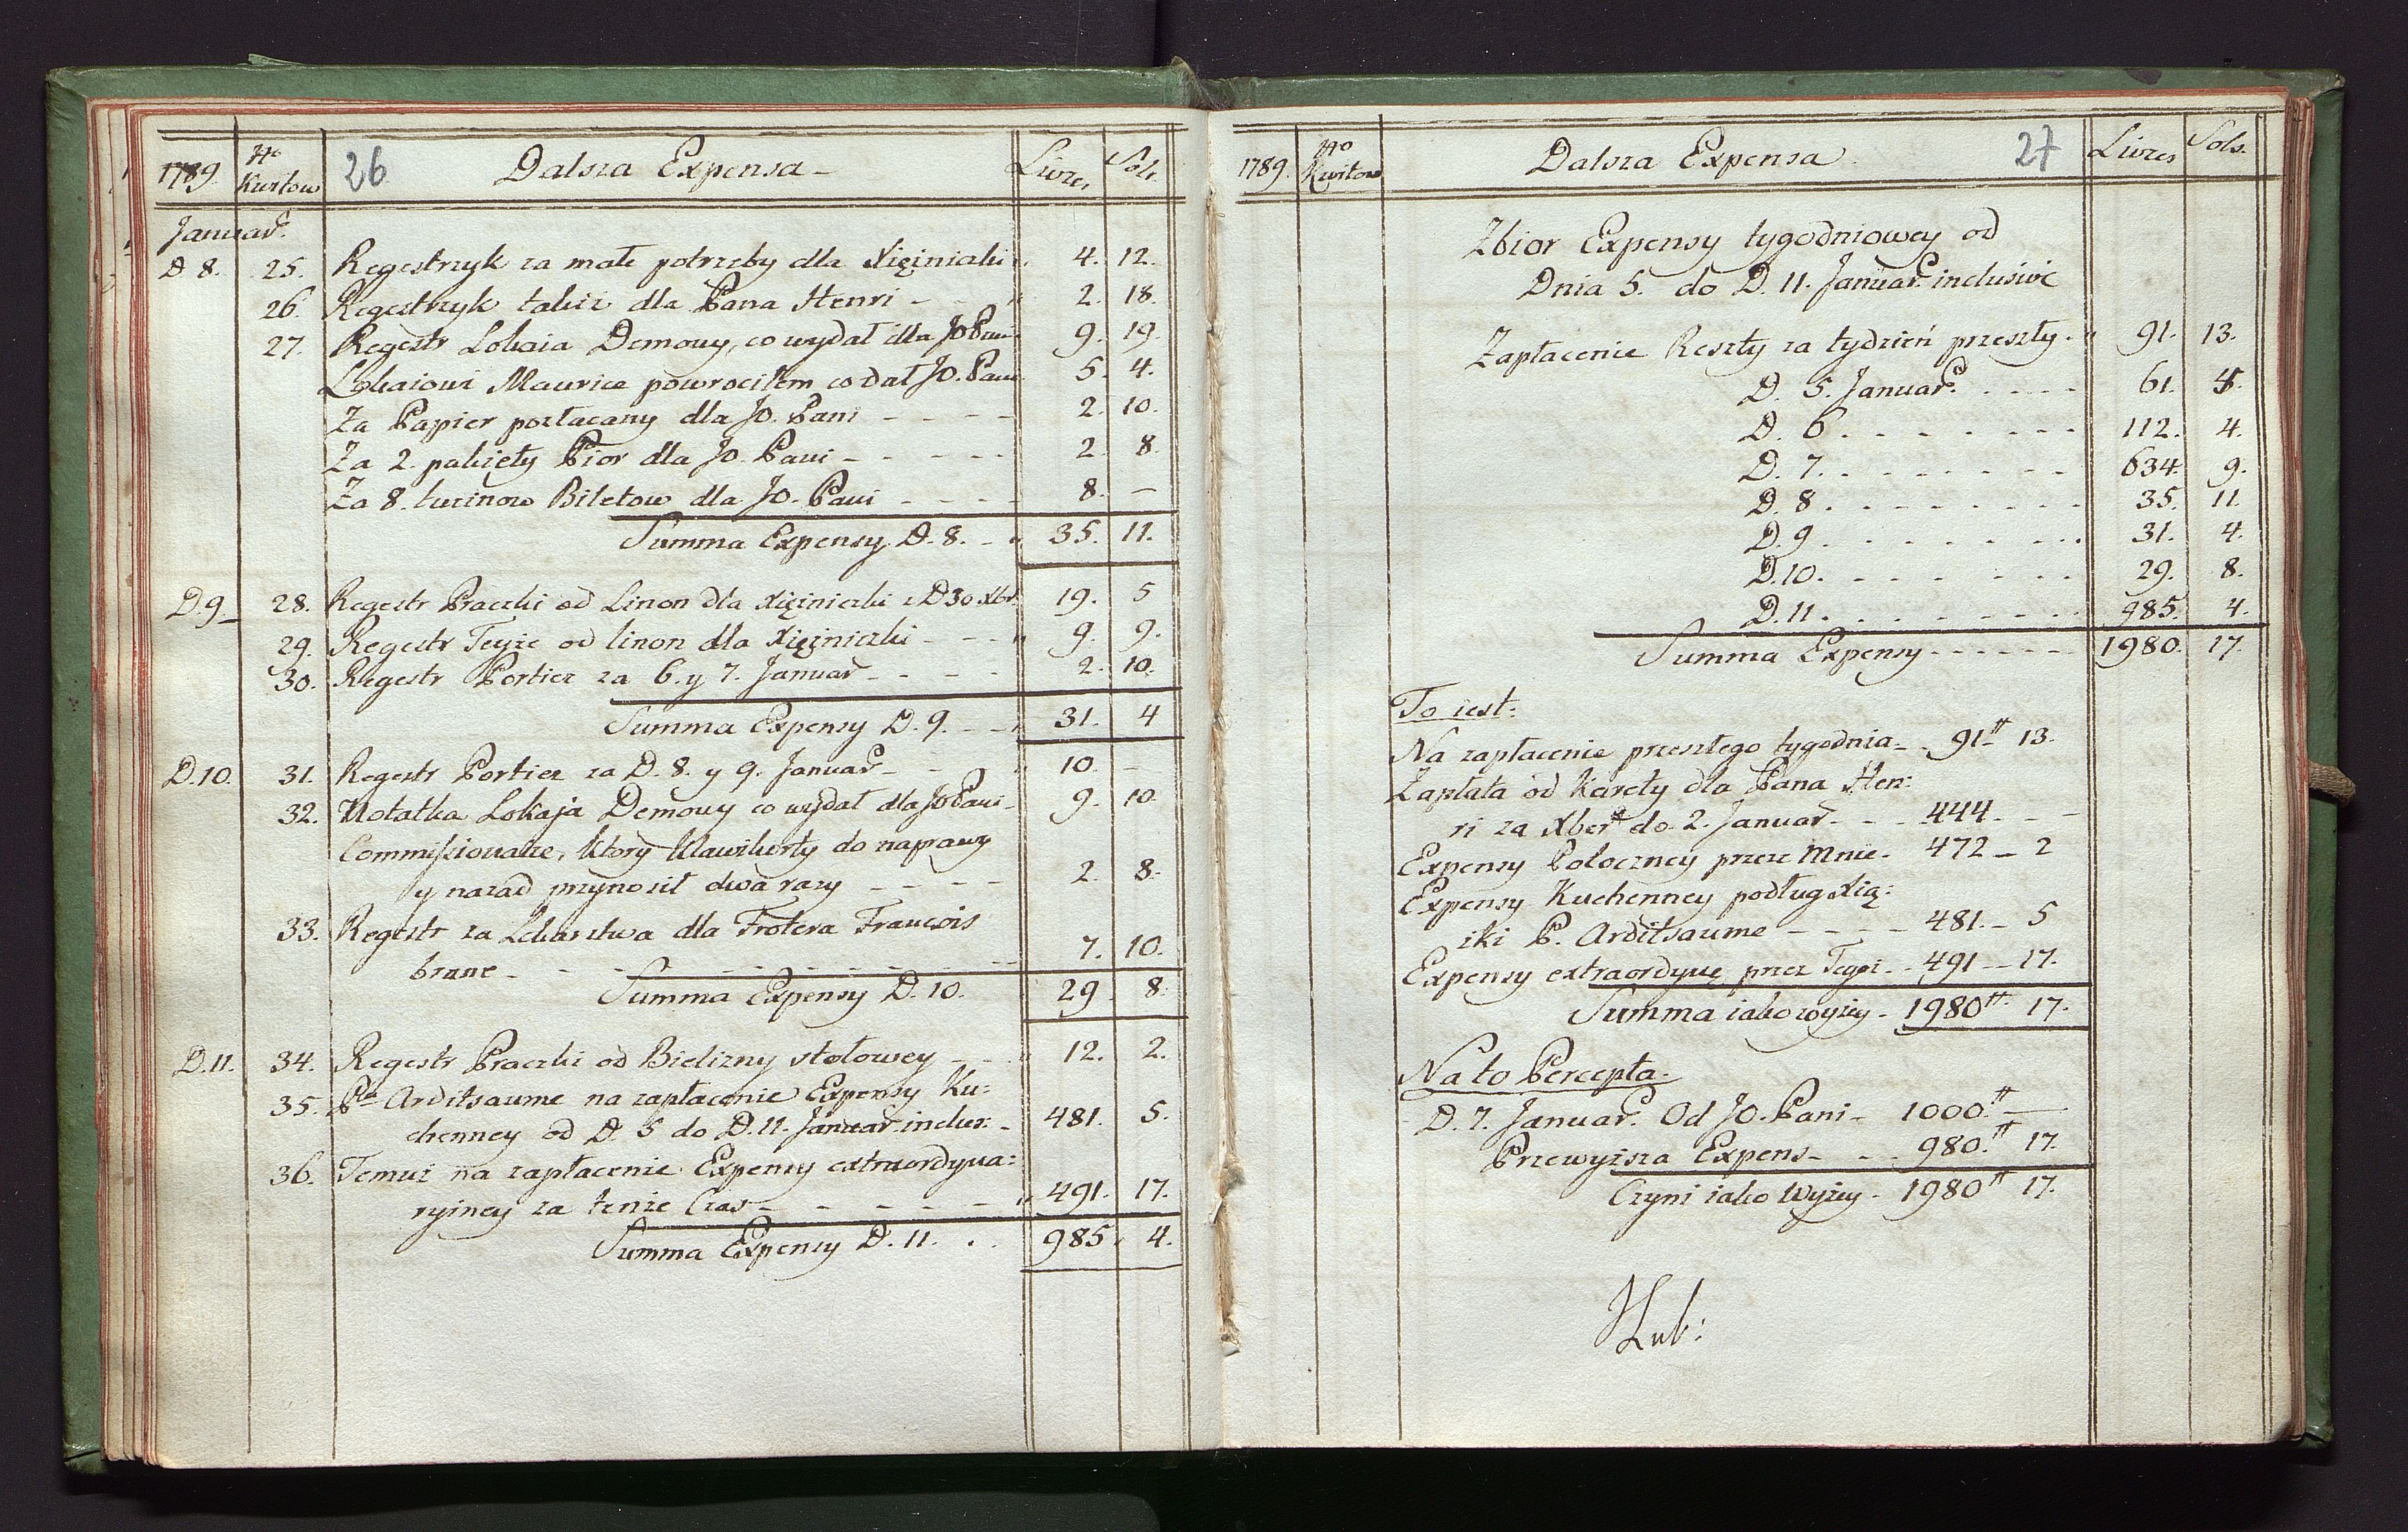 1789. No Kwitow 26 Dalsza Expensa Livres Sols.
Januar.
D 8. 25. Regestrzyk za małe potrzeby dla Xięzniczki 4. 12.
26. Regestrzyk takiż dla Pana Henri - 2. 18.
27. Regestr Lokaia Demowy, co wydał dla JO Pani 9. 19.
Lokaiowi Maurice powrociłem co dał JO. Pani 5. 4.
Za Papier pozłacany dla JO. Pani - - - - 2. 10.
Za 2. pakiety Pior dla JO. Pani - - - - - 2. 8.
Za 8. tuzinow Biletow dla JO. Pani - - - - 8. -
Summa Expensy D. 8. - 35. 11.
D. 9 28. Regestr Praczki od Linon dla Xięzniczki z D 30 Xbr. 19. 5
29. Regestr Teyże od linon dla Xięzniczki - - - 9. 9.
30. Regestr Portier za 6. y 7. Januar - - - - 2. 10.
Summa Expensy D. 9. - - 31. 4
D. 10. 31. Regestr Portier za D. 8. y 9. Januar - - 10. -
32. Notatka Lokaja Demowy co wydał dla JO Pani - 9. 10.
Commissionarze, ktory Klawikorty do naprawy
y nazad przynosił dwa razy - - - - 2. 8.
33. Regestr za Lekarstwa dla Frotera François
brane - - - - - - - - 7. 10.
Summa Expensy D. 10. 29. 8.
D. 11. 34. Regestr Praczki od Bielizny stołowey - - 12. 2.
35. Pu Arditsaume na zapłacenie Expensy Ku:
chenney od D. 5 do D. 11. Januar. inclus: - 481. 5.
36. Temuż na zapłacenie Expensy extraordyna:
ryiney za tenże Czas - - - - - - 491. 17.
Summa Expensy D. 11. . . 985. 4.
1789. No Kwitow Dalsza Expensa 27 Livres Sols.
Zbior Expensy tygodniowey od
Dnia 5. do D. 11. Januar. inclusive
Zapłacenie Reszty za tydzień przeszły. 91. 13.
D. 5. Januar. . . . . 61. 4.
D. 6 . . . . . . . 112. 4.
D. 7. . . . . . . . 634. 9.
D. 8. . . . . . . . 35. 11.
D. 9 . . . . . . . 31. 4.
D. 10. . . . . . . 29. 8.
D. 11. . . . . . . . 985. 4.
Summa Expensy - - - - - - 1980. 17.
To iest:
Na zapłacenie przeszłego tygodnia - 91.tt 13.
Zapłata od Karety dla Pana Hen:
ri za Xber do 2. Januar - - - 444. - -
Expensy Potoczney przez Mnie - 472 - 2
Expensy Kuchenney podług Xią:
żki P. Arditsaume - - - - 481. - 5
Expensy extraordynę przez Tegoż - 491 - 17.
Summa iako wyżey - 1980tt 17.
Na to Percepta.
D. 7. Januar. Od JO. Pani - 1000.tt -
Przewyższa Expens - - - 980.tt 17.
Czyni iako Wyżey - 1980tt 17.